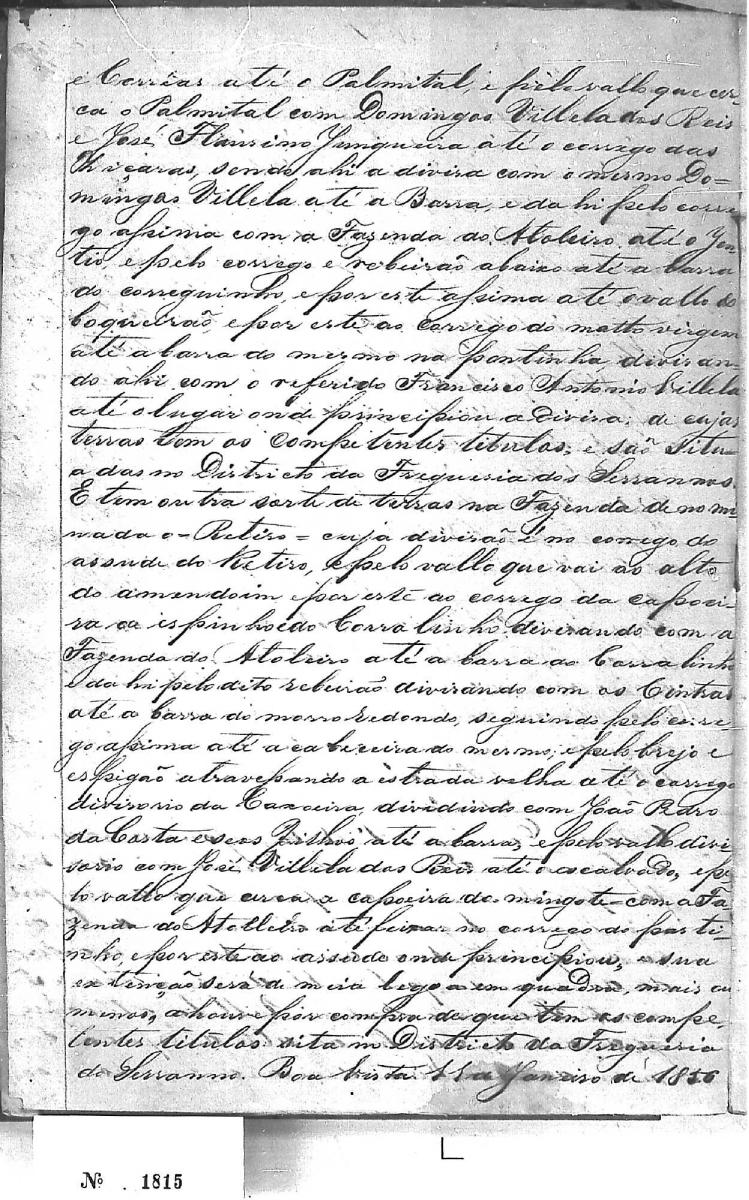 e Corrêas até o Palmital, e pelo vallo que cer-
ca o Palmital com Domingos Villela dos Reis
e José Flausino Junqueira até o corrego das
Thiçaras, sendo ahi a divisa com o mesmo Do=
mingos Villela até a Barra, e dahi pelo corre
go assima com a Fazenda do Atoleiro até o
tio, e pelo corrego e rebeirão abaixo até a barra
do correguinho, e por este assima até o vallo do
boqueirão, e por este ao corrego do matto virgem
até a barra do mesmo na pontinha, divisan-
do ahi com o referido Francisco Antonio Villela
até o lugar onde principiou a Divisa, de cujas
terras tem os competentes titulos, e são Situ-
adas no Districto da Freguesia dos Serrannos.
E tem outra sorte de terras na Fazenda denomi
nada o = Retiro = cuja divisão é no comego do
assude do Retiro, e pelo vallo que vai ao alto
do amendoim e por este ao corrego da capoei-
ra da espinho do Corralinho, divisando com a
Fazenda do Atoleiro até a barra do Corralinho
e dahi pelo dito rebeirão divisando com os Cintras
até a barra do morro redondo, seguindo pelo corre
go assima até a cabeceira do mesmo, e pelo brejo e
espigão atravessando a estrada velha até o corrego
divisorio da Caxoeira, dividindo com João Pedro
da Costa e seos Filhos até a barra, e pelo vallo divi
sorio com José Villela dos Reis até o escalvado, e pe
lo vallo que cerca a capoeira do mingote = com a Fa
zenda do Atolleiro até feixar no corrego do pasti-
nho, e por este ao assude onde principiou, e sua
extenção será de meia legoa em quadra, mais ou
menos, a houve por compra de que tem os compe,
tentes titulos sita no Districto da Freguesia
do Serranno. Boa Vista 15 de Janeiro de 1856
Nº . 1815